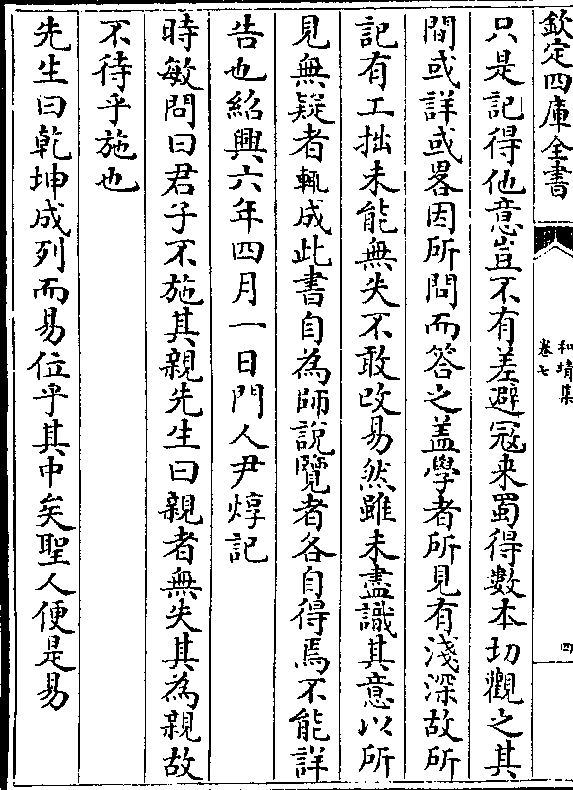 欽定四庫全書
和靖集
卷七
四
只是記得他意豈不有差避冦来蜀得數本切觀之其
間或詳或畧因所問而答之盖學者所見有淺深故所
記有工拙未能無失不敢改易然雖未盡識其意以所
見無疑者輒成此書自為師說覽者各自得焉不能詳
告也紹興六年四月一日門人尹焞記
時敏問曰君子不施其親先生曰親者無失其為親故
不待乎施也
先生曰乾坤成列而易位乎其中矣聖人便是易